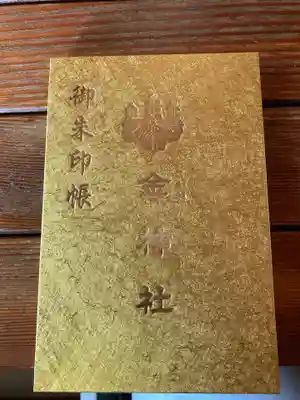 御朱印帳
金神社